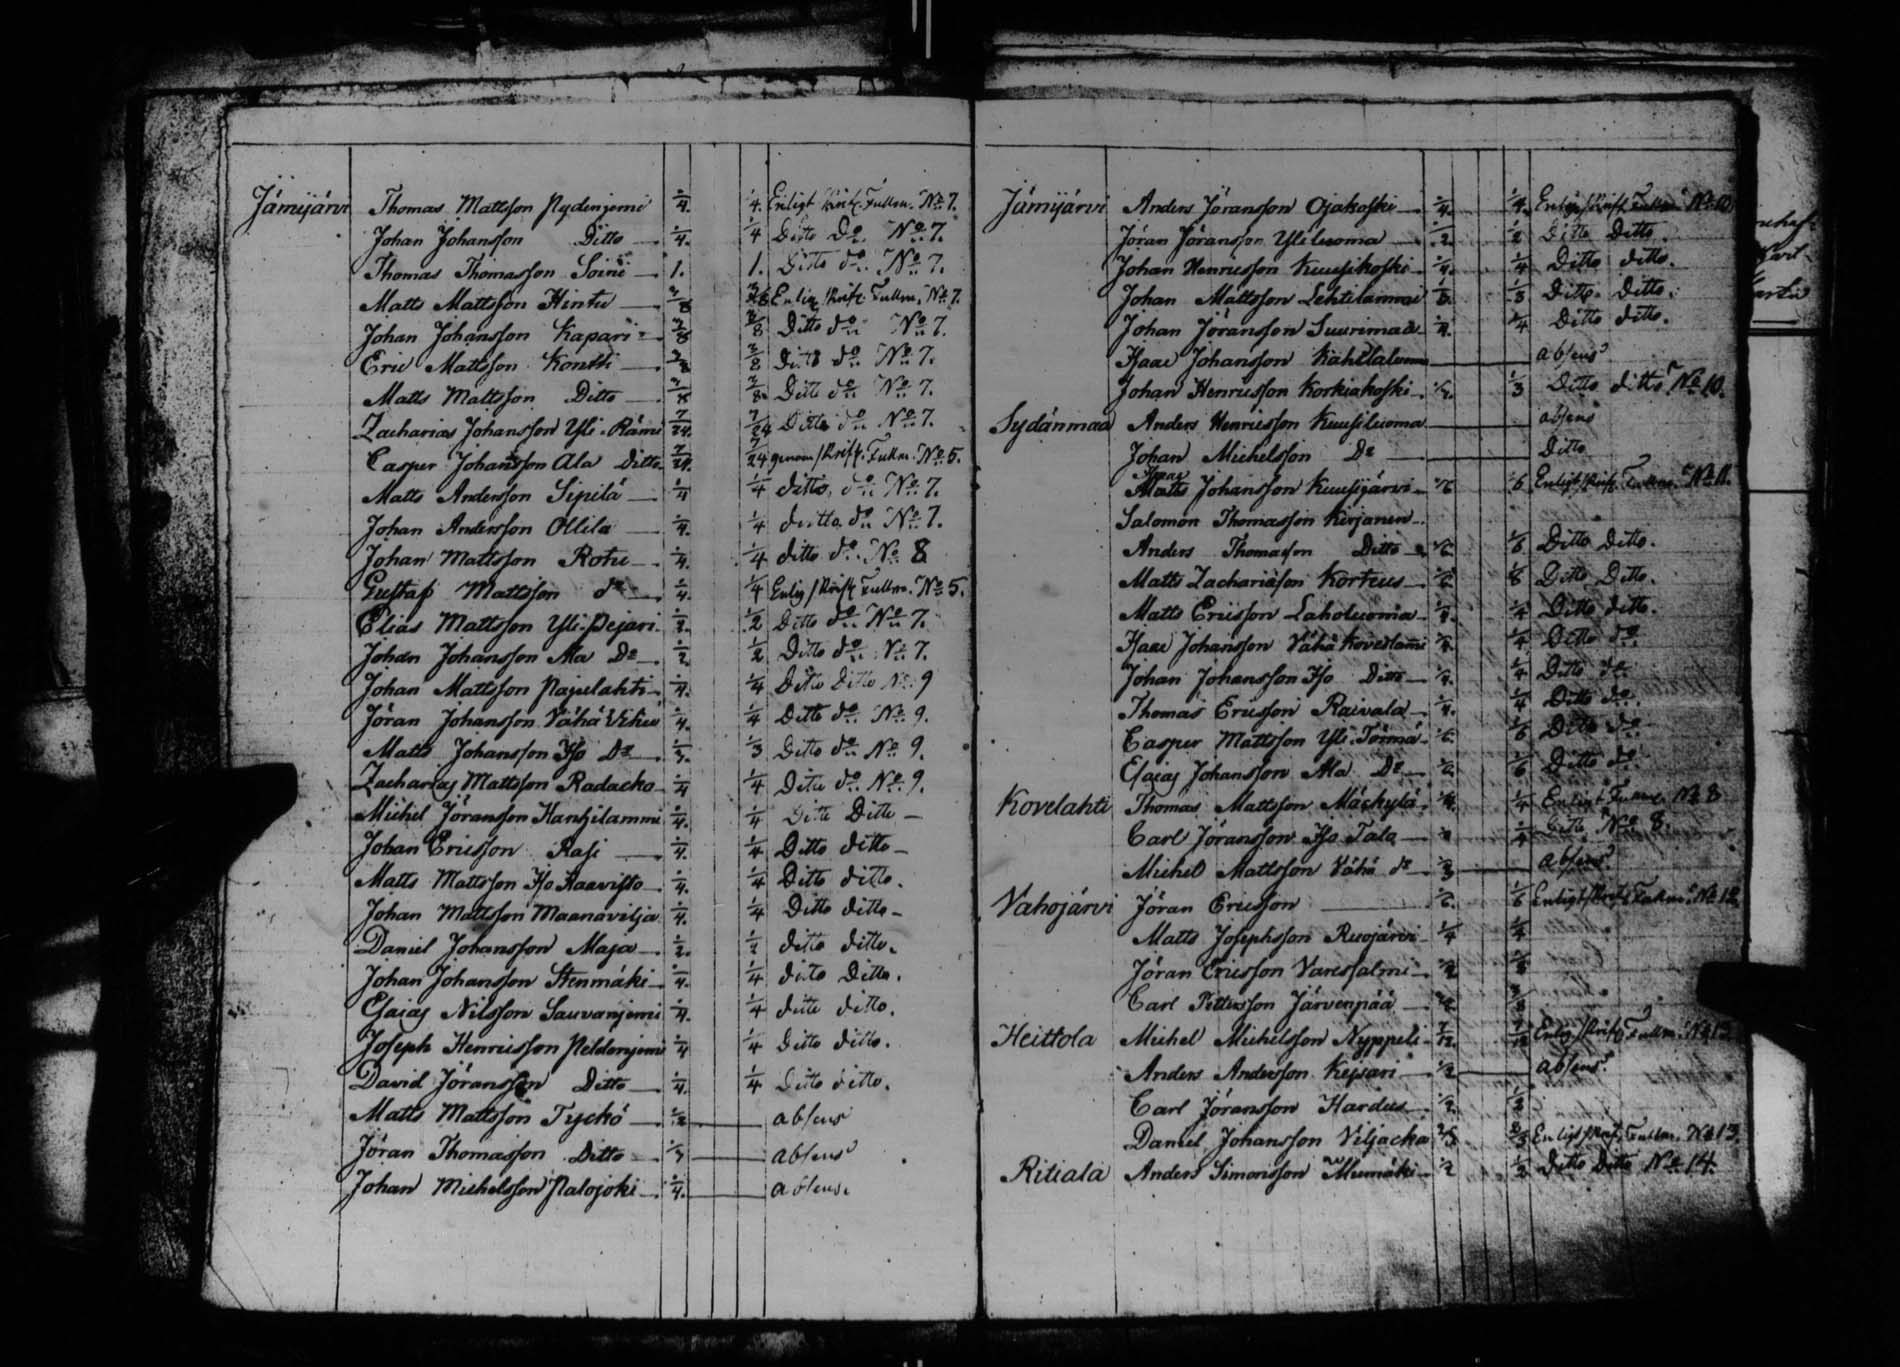 Jämijärvi Thomas Mattsson Nydenjemi 1/4. 1/4. Enligt skrift. Fullm. No 7.
Johan Johansson Ditto 1/4. 1/4 Ditto Do No 7.
Thomas Thomasson Soini 1. 1. Ditto do No 7.
Matts Mattsson Hintu 3/8 3/8 Enlig skrift Fullm. No 7.
Johan Johansson Kapari 3/8 3/8 Ditto do No 7.
Eric Mattsson Kontti 3/8 3/8 Ditto do No 7.
Matts Mattsson Ditto 3/8 3/8 Ditto do No 7.
Zacharias Johansson Yli-Rämi 7/24. 7/24 Ditto do No 7.
Casper Johansson Ala Ditto 7/24. 7/24 genom skrift. Fullm. No 5.
Matts Andersson Sipilä 1/4 1/4 ditto, do No 7.
Johan Andersson Ollila 1/4. 1/4 ditto do No 7.
Johan Mattsson Rotu 1/4. 1/4 ditto do No 8
Gustaf Mattsson do 1/4. 1/4 Enlig skrift Fullm. No 5.
Elias Mattsson Yli-Pejari 1/2. 1/2 Ditto do No 7.
Johan Johansson Ala Do 1/2. 1/2 Ditto do No 7.
Johan Mattsson Pajulahti 1/4. 1/4 Ditto Ditto No 9
Jöran Johansson Vähä Uhu 1/4. 1/4 Ditto do No 9.
Matts Johansson Iso Do 1/3. 1/3 Ditto do No 9.
Zacharias Mattsson Radacko 1/4 1/4 Ditto do No 9.
Michel Jöransson Kanhilammi 1/4. 1/4 Ditto Ditto
Johan Ericsson Rasi 1/4. 1/4 Ditto ditto
Matts Mattsson Iso Haavisto 1/4. 1/4 Ditto ditto.
Johan Mattsson Maanavilja 1/4. 1/4 Ditto ditto
Daniel Johansson Maja 1/2. 1/2 ditto ditto.
Johan Johansson Stenmäki 1/4. 1/4 ditto Ditto.
Esaias Nilsson Sauvanjemi 1/4. 1/4 ditto ditto.
Joseph Henricsson Peldonjemi 1/4 1/4 Ditto ditto.
David Jöransson Ditto 1/4. 1/4 Ditto ditto.
Matts Mattsson Tyckö 1/2 absens
Jöran Thomasson Ditto 1/3 absens
Johan Michelsson Palojoki 1/4. absens.
Jämijärvi Anders Jöransson Ojakoski 1/4. 1/4. Enligt skrift Fullm. No 10
Jöran Jöransson Yliluoma 1/2. 1/2 Ditto Ditto.
Johan Henricsson Kuusikoski 1/4. 1/4 Ditto ditto.
Johan Mattsson Lehtilammi 1/8. 1/8 Ditto Ditto.
Johan Jöransson Suurimaa 1/4. 1/4 Ditto ditto.
Isaac Johansson Kahilaluoma absens
Johan Henricsson Korkiakoski 1/3. 1/3 Ditto ditto No 10.
Sydänmaa Anders Henricsson Kuusiluoma absens
Johan Michelsson Do Ditto
Isaac
Matts Johansson Kuusijärvi 1/6 1/6 Enligt skrift Fullm. No 11.
Salomon Thomasson Kirjanen
Anders Thomasson Ditto 1/6. 1/6 Ditto Ditto.
Matts Zachariasson Kortus 1/6. 1/6 Ditto Ditto.
Matts Ericsson Laholuoma 1/4. 1/4 Ditto ditto.
Isaac Johansson Vähä Koveslami 1/4. 1/4 Ditto do
Johan Johansson Iso Ditto 1/4. 1/4 Ditto do
Thomas Ericsson Raivala 1/4. 1/4 Ditto do.
Casper Mattsson Yli Törmä 1/6. 1/6 Ditto do
Esaias Johansson Ala Do 1/6. 1/6 Ditto do
Kovelahti Thomas Mattsson Mäckylä 1/4. 1/4 Enligt Fullm. No 8
Carl Jöransson Iso Tala 1/4 1/4 Ditto No 8.
Michel Mattsson Vähä do 1/3 absens
Vahojärvi Jöran Ericsson 1/6. 1/6 Enligt skrift Fullm. No 12
Matts Josephsson Ruojärvi 1/4 1/4
Jöran Ericsson Varessalmi
Carl Pettersson Järvenpää
Heittola Michel Michelsson Nyppeli 7/12. 7/12 Enlig skrift Fullm. No 13
Anders Andersson Keysari 1/2 absens.
Carl Jöransson Hardus 1/2. 1/2
Daniel Johansson Viljacka 2/3. 2/3 Enligt skrift. Fullm. No 13.
Ritiala Anders Simonsson Mumäki 1/2 1/2 Ditto Ditto No 14.